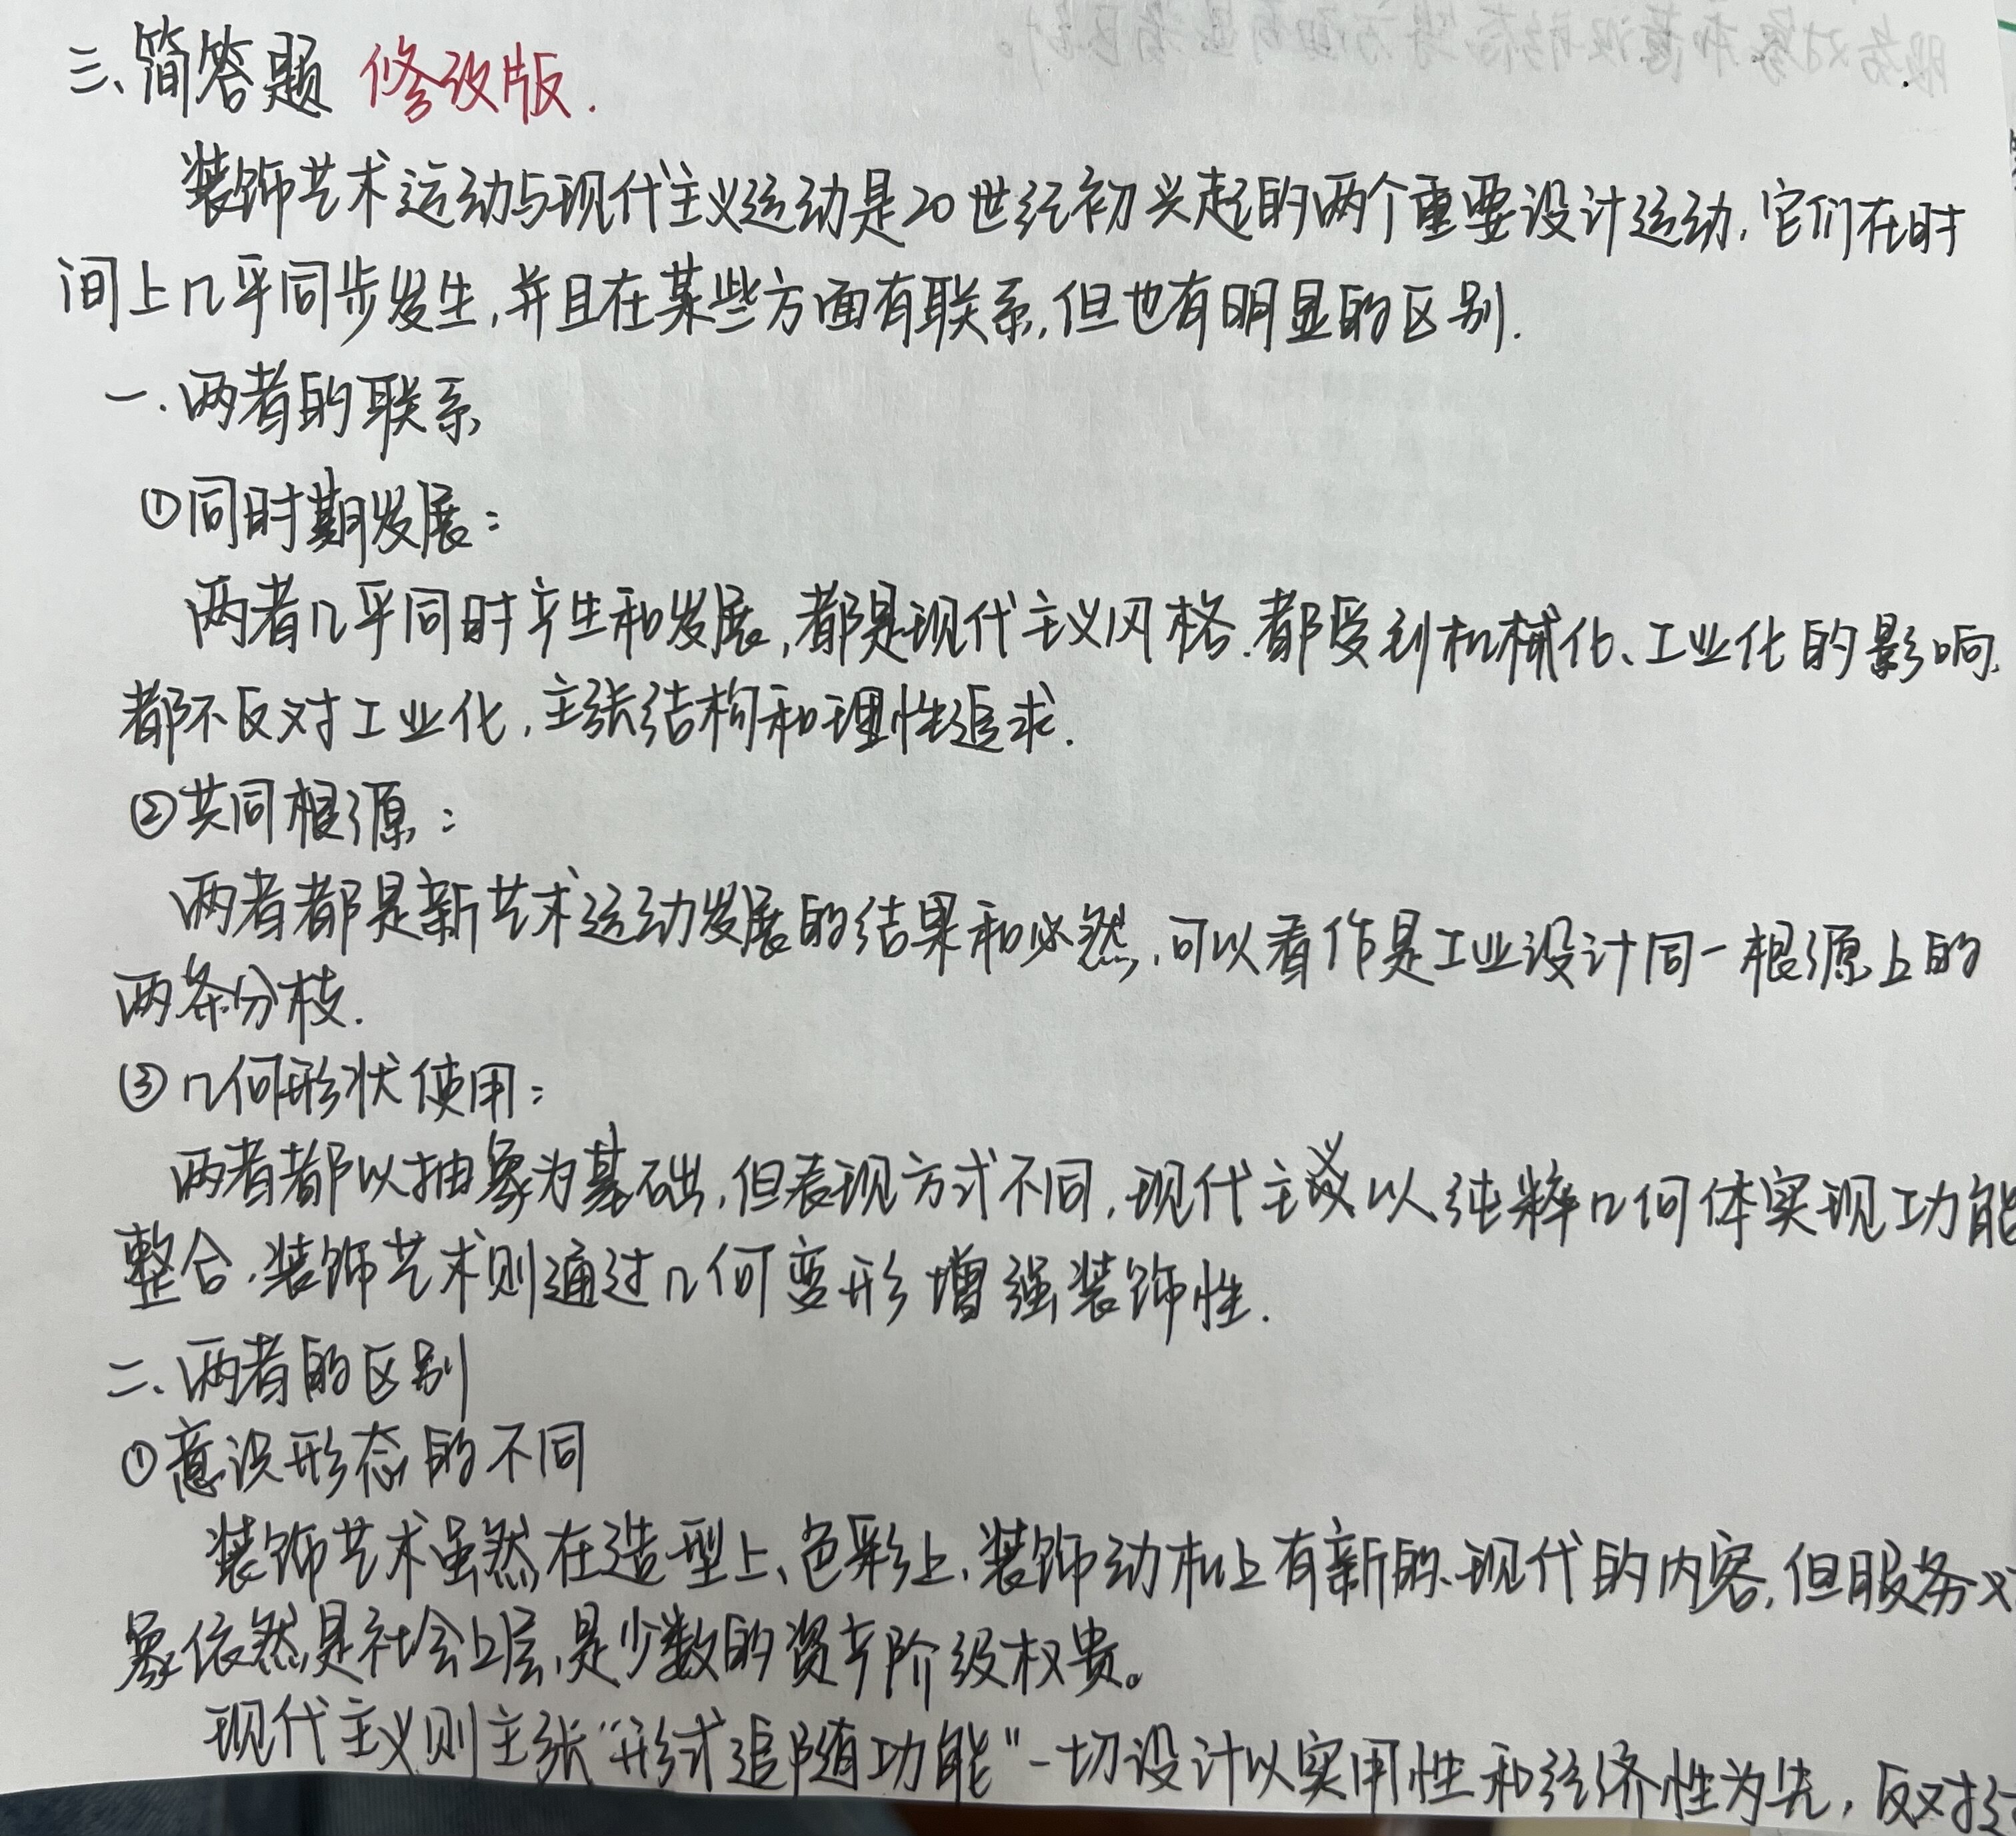 三、简答题 修改版.
装饰艺术运动与现代主义运动是20世纪初兴起的两个重要设计运动,它们在时
间上几乎同步发生,并且在某些方面有联系,但也有明显的区别.
一.两者的联系
①同时期发展:
两者几乎同时产生和发展,都是现代主义风格.都受到机械化、工业化的影响,
都不反对工业化,主张结构和理性追求.
②共同根源:
两者都是新艺术运动发展的结果和必然,可以看作是工业设计同一根源上的
两条分枝.
③几何形状使用:
两者都以抽象为基础,但表现方式不同,现代主义以纯粹几何体实现功能
整合.装饰艺术则通过几何变形增强装饰性.
二、两者的区别
①意识形态的不同
装饰艺术虽然在造型上、色彩上、装饰动机上有新的、现代的内容,但服务对
象依然是社会上层,是少数的资产阶级权贵。
现代主义则主张“形式追随功能”一切设计以实用性和经济性为先,反对